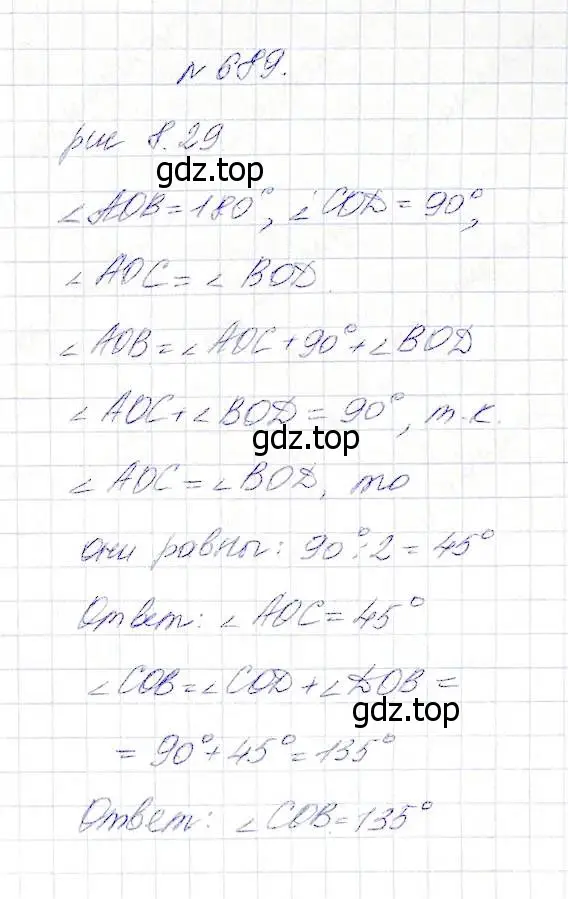 № 689.
рис 8.29
gdz.top
∠AOB = 180°, ∠COD = 90°,
∠AOC = ∠BOD.
∠AOB = ∠AOC + 90° + ∠BOD
∠AOC + ∠BOD = 90°, т.к.
gdz.top
∠AOC = ∠BOD, то
они равны: 90° : 2 = 45°
Ответ: ∠AOC = 45°
∠COB = ∠COD + ∠DOB =
gdz.top
= 90° + 45° = 135°
Ответ: ∠COB = 135°